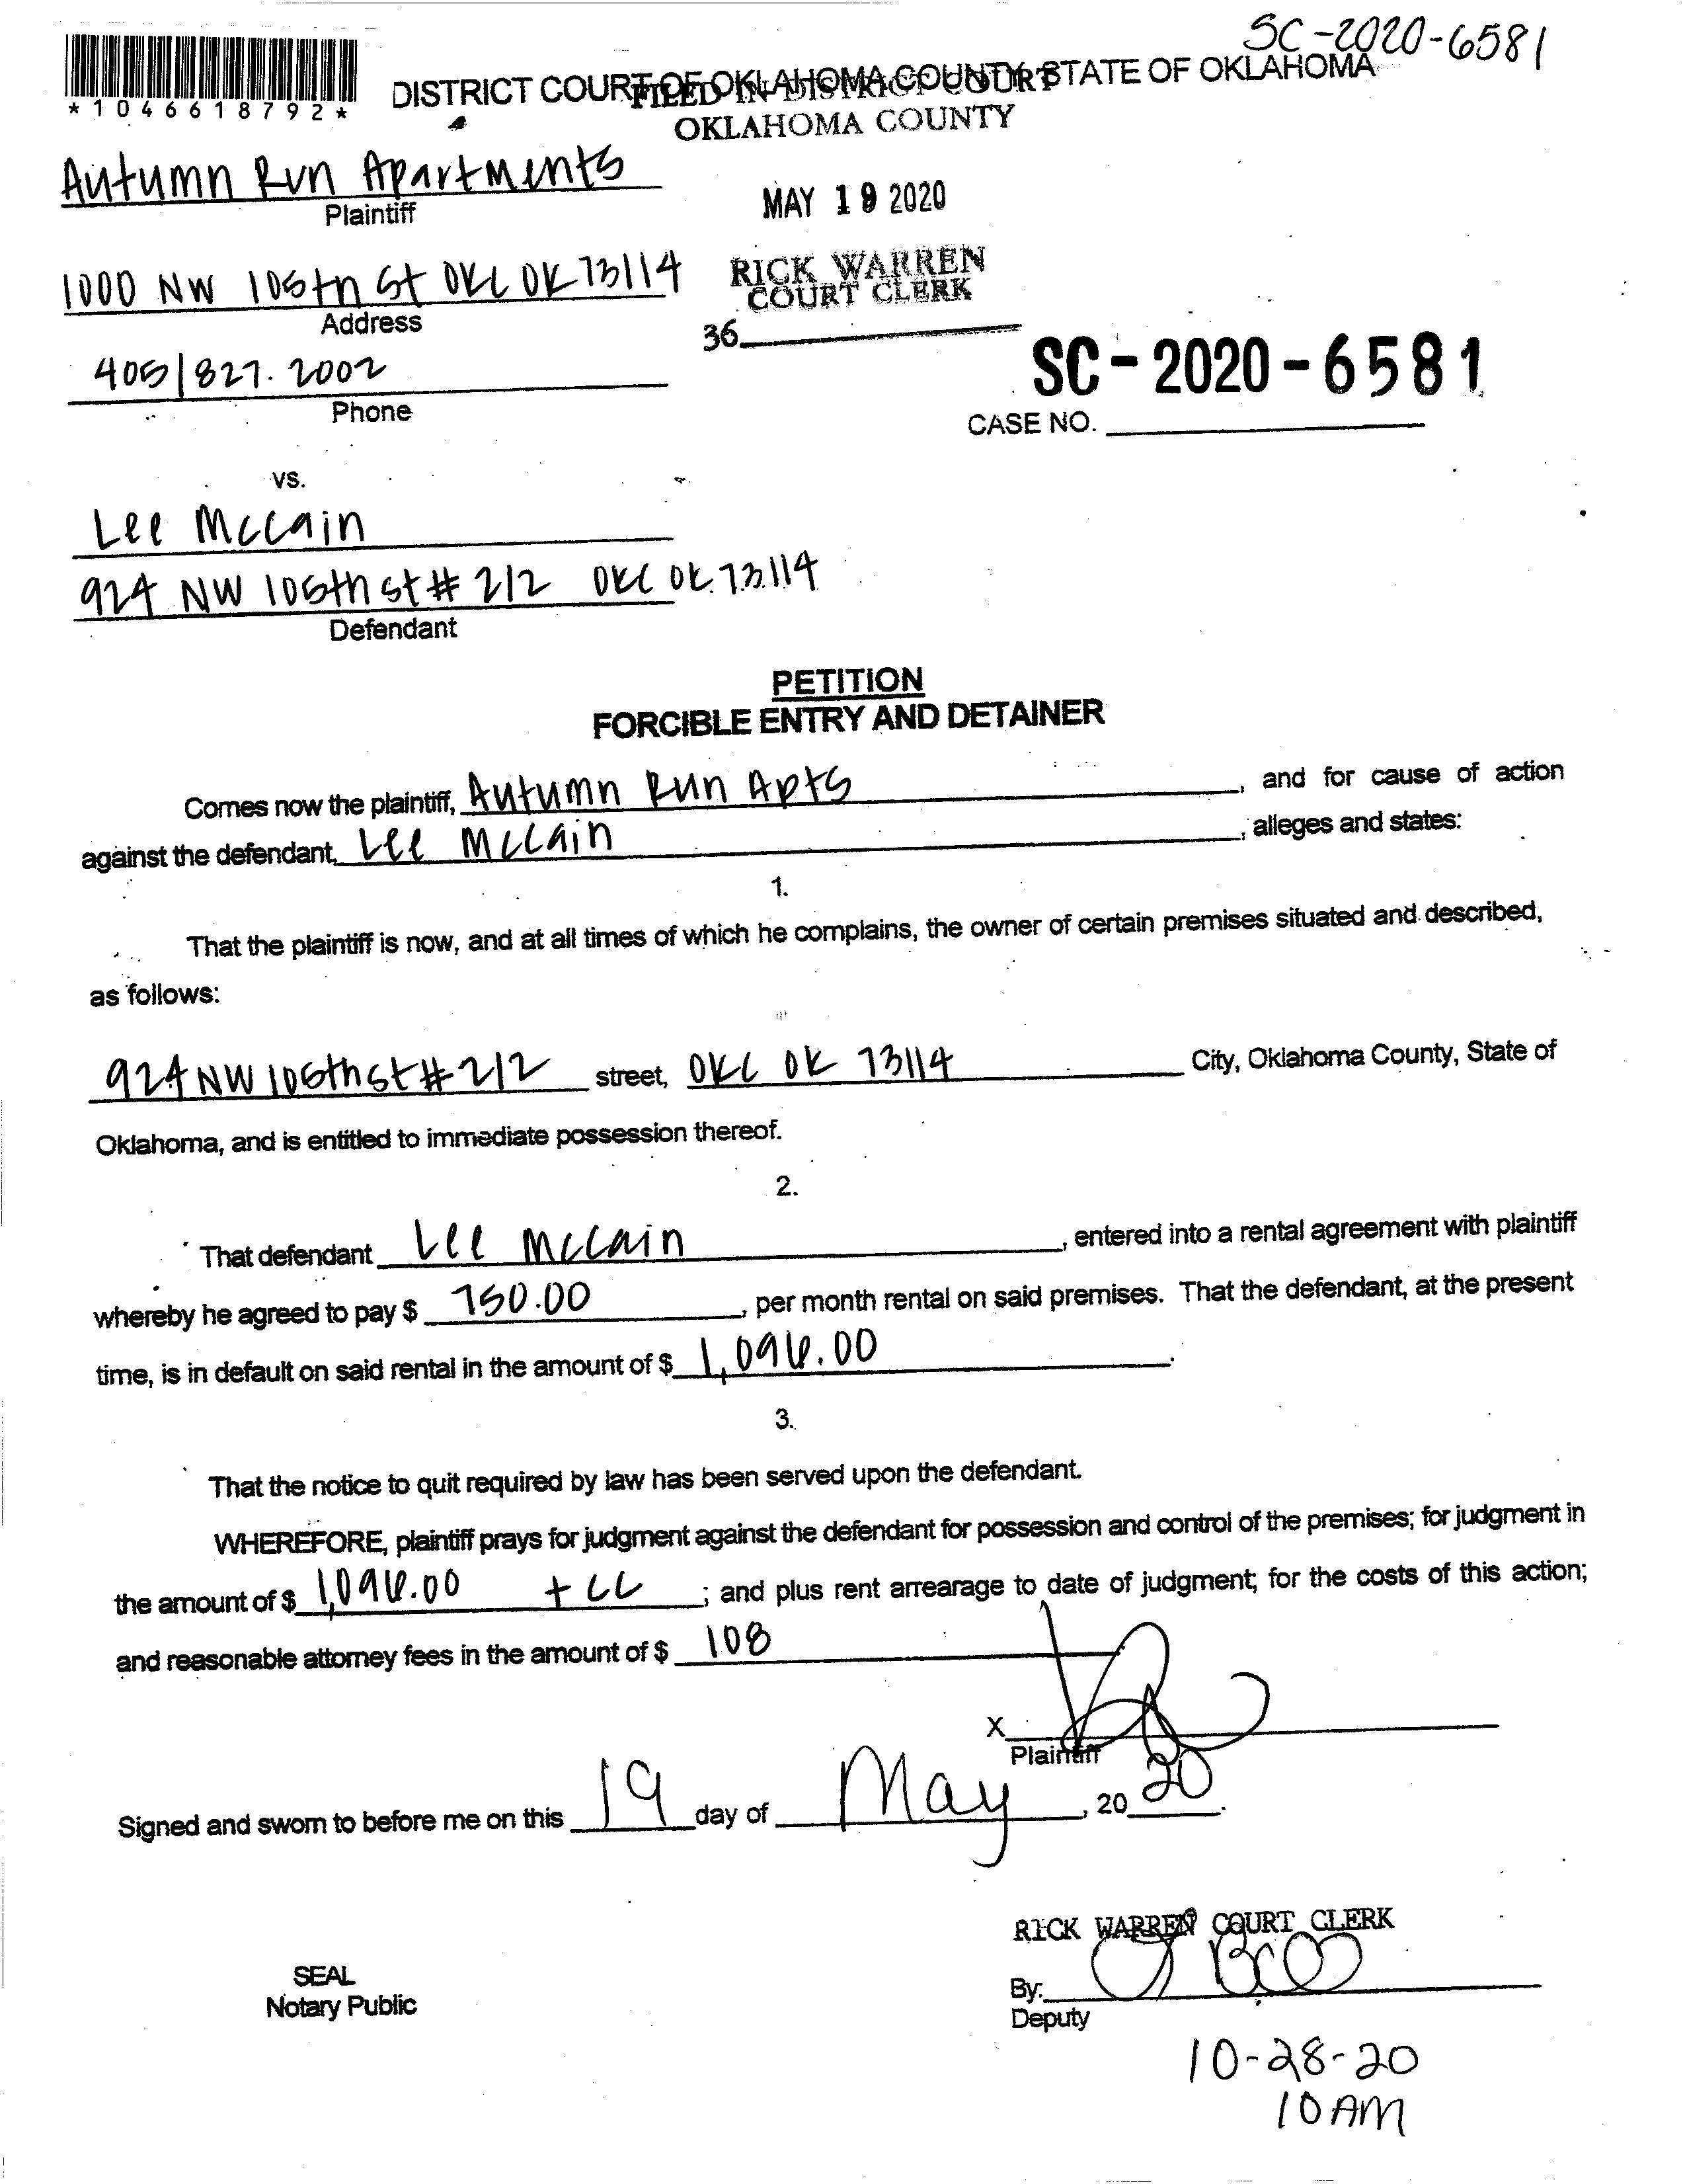 SC-2020-6581
*1046618792*
DISTRICT COURT OF OKLAHOMA COUNTY, STATE OF OKLAHOMA
FILED IN DISTRICT COURT
OKLAHOMA COUNTY
Autumn Run Apartments
Plaintiff
MAY 19 2020
1000 NW 105th St OKC OK 73114
Address
RICK WARREN
COURT CLERK
36
405|827.2002
Phone
SC-2020-6581
CASE NO.
vs.
Lee McCain
924 NW 106th st # 212 OKC OK. 73114
Defendant
PETITION
FORCIBLE ENTRY AND DETAINER
Comes now the plaintiff, Autumn Run Apts, and for cause of action
against the defendant, Lee McCain, alleges and states:
1.
That the plaintiff is now, and at all times of which he complains, the owner of certain premises situated and described,
as follows:
924 NW 106th st # 212 street, OKC OK 73114 City, Oklahoma County, State of
Oklahoma, and is entitled to immediate possession thereof.
2.
That defendant Lee McCain, entered into a rental agreement with plaintiff
whereby he agreed to pay $ 750.00, per month rental on said premises. That the defendant, at the present
time, is in default on said rental in the amount of $ 1,096.00.
3.
That the notice to quit required by law has been served upon the defendant.
WHEREFORE, plaintiff prays for judgment against the defendant for possession and control of the premises; for judgment in
the amount of $ 1,096.00 + CC; and plus rent arrearage to date of judgment; for the costs of this action;
and reasonable attorney fees in the amount of $ 108
X
Plaintiff
Signed and sworn to before me on this 19 day of May, 2020.
RICK WARREN COURT CLERK
SEAL
Notary Public
By:
Deputy
10-28-20
10 AM